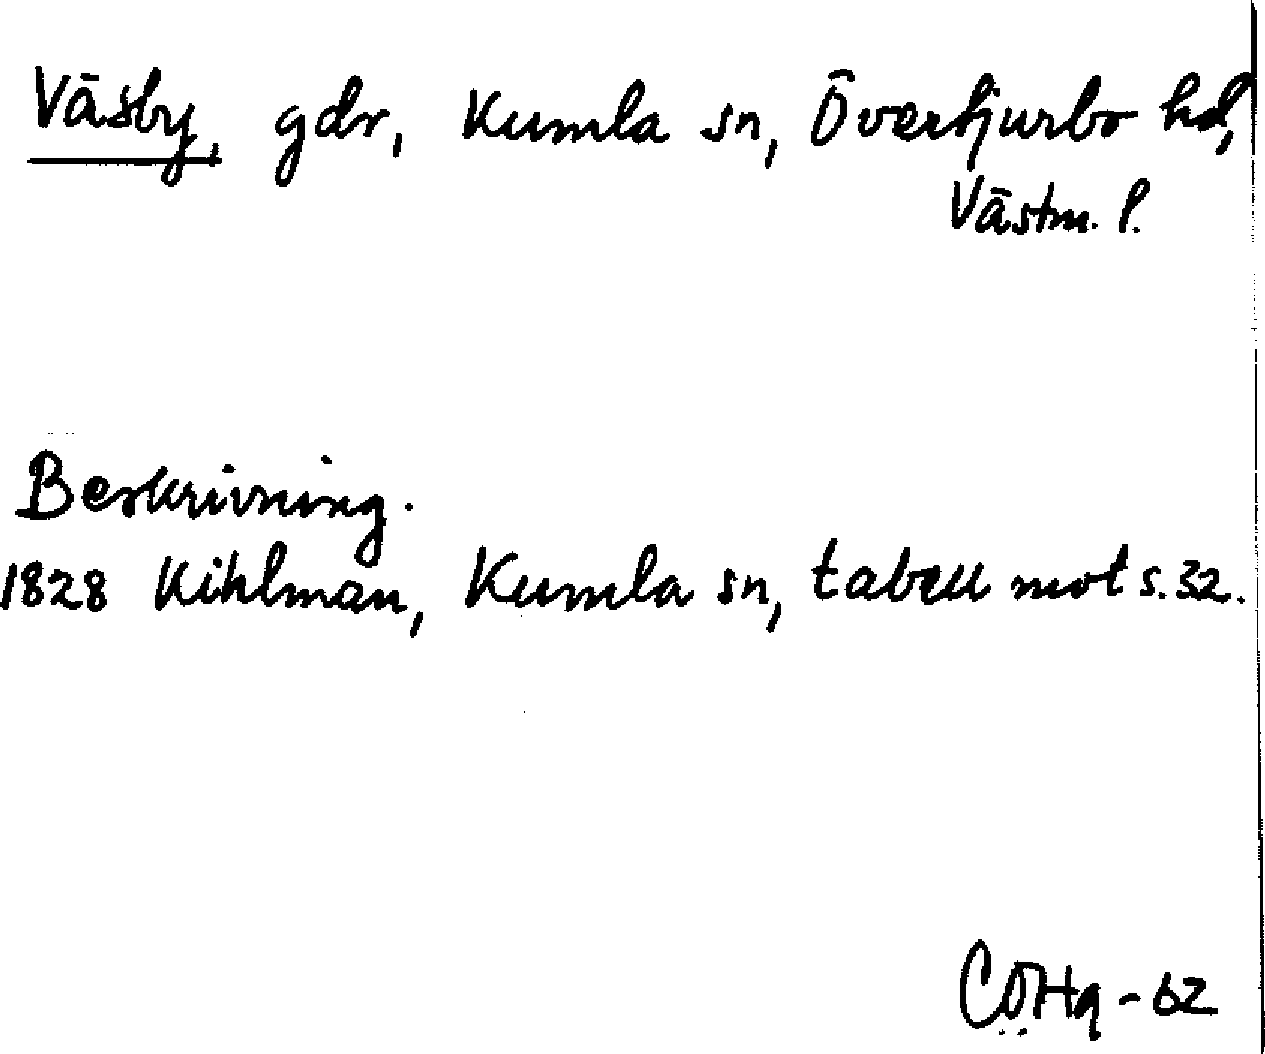 Väsby, gdr, Kumla sn, Övertjurbo hd,
Västm. l.
Beskrivning.
1828 Kihlman, Kumla sn, tabell mot s. 32.